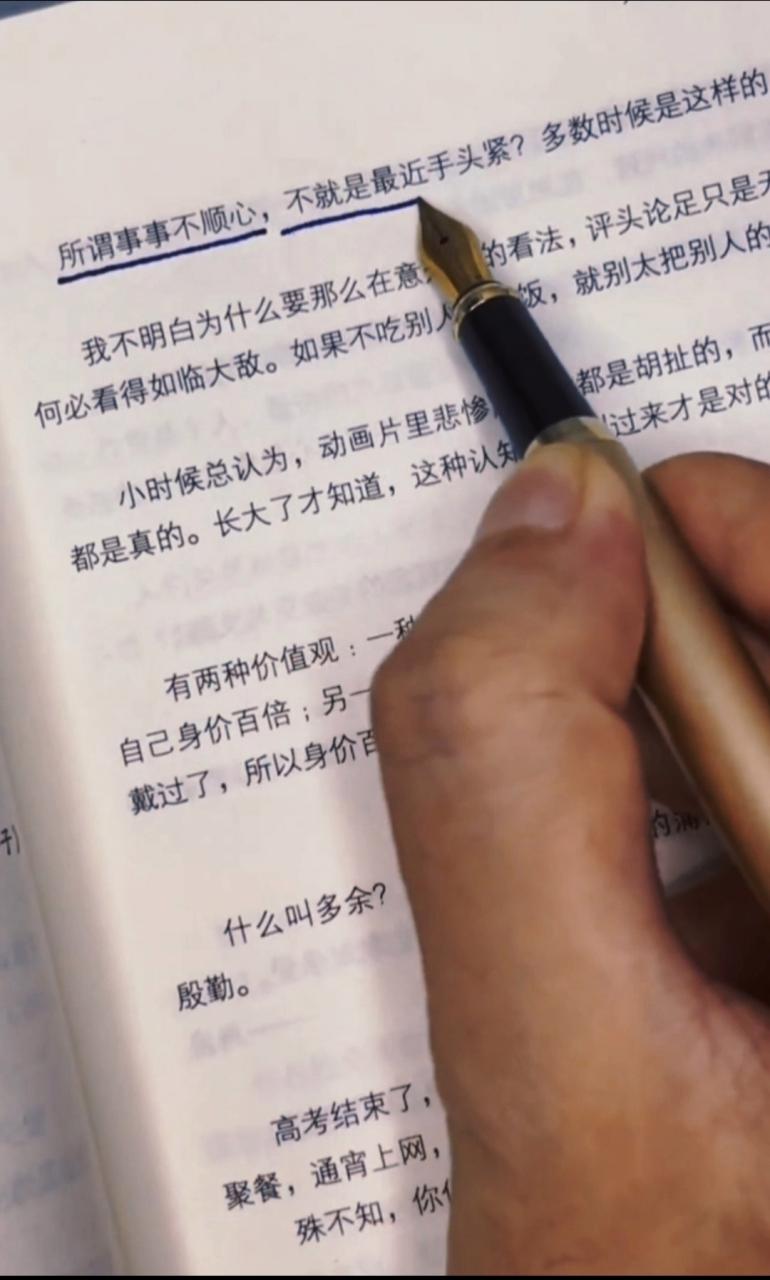 所谓事事不顺心，不就是最近手头紧？多数时候是这样的
我不明白为什么要那么在意 的看法，评头论足只是无
何必看得如临大敌。如果不吃别人 饭，就别太把别人的
小时候总认为，动画片里悲惨 都是胡扯的，而
都是真的。长大了才知道，这种认知 过来才是对的
有两种价值观：一种
自己身价百倍；另一
戴过了，所以身价百
的
什么叫多余？
殷勤。
高考结束了，
聚餐，通宵上网，
殊不知，你